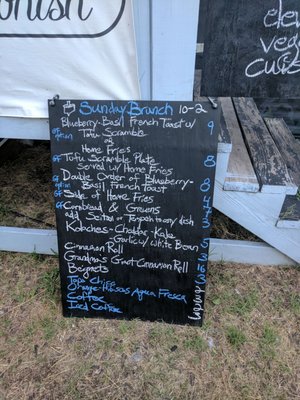 onish
Sunday Brunch 10-2
Blueberry-Basil French Toast w/ 9
Tofu Scramble
or
Home Fries
Tofu Scramble Plate 8
Served w/ Home Fries
Double Order of Blueberry- 8
Basil French Toast
Side of Home Fries 4
Cornbread & Greens
add Seitan or Tempeh to any dish
Kolaches - Cheddar, Kale
Garlic w/ White Bean
Cinnamon Roll
Grandma's Giant Cinnamon Roll
Beignets
Topo Chico
Agua Fresca
Coffee
Iced Coffee